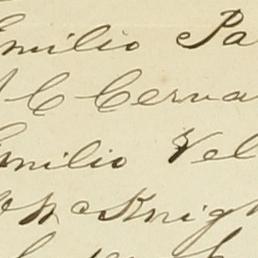 Emilio Pa
C Cerva
Emilio Vel
McKnigh